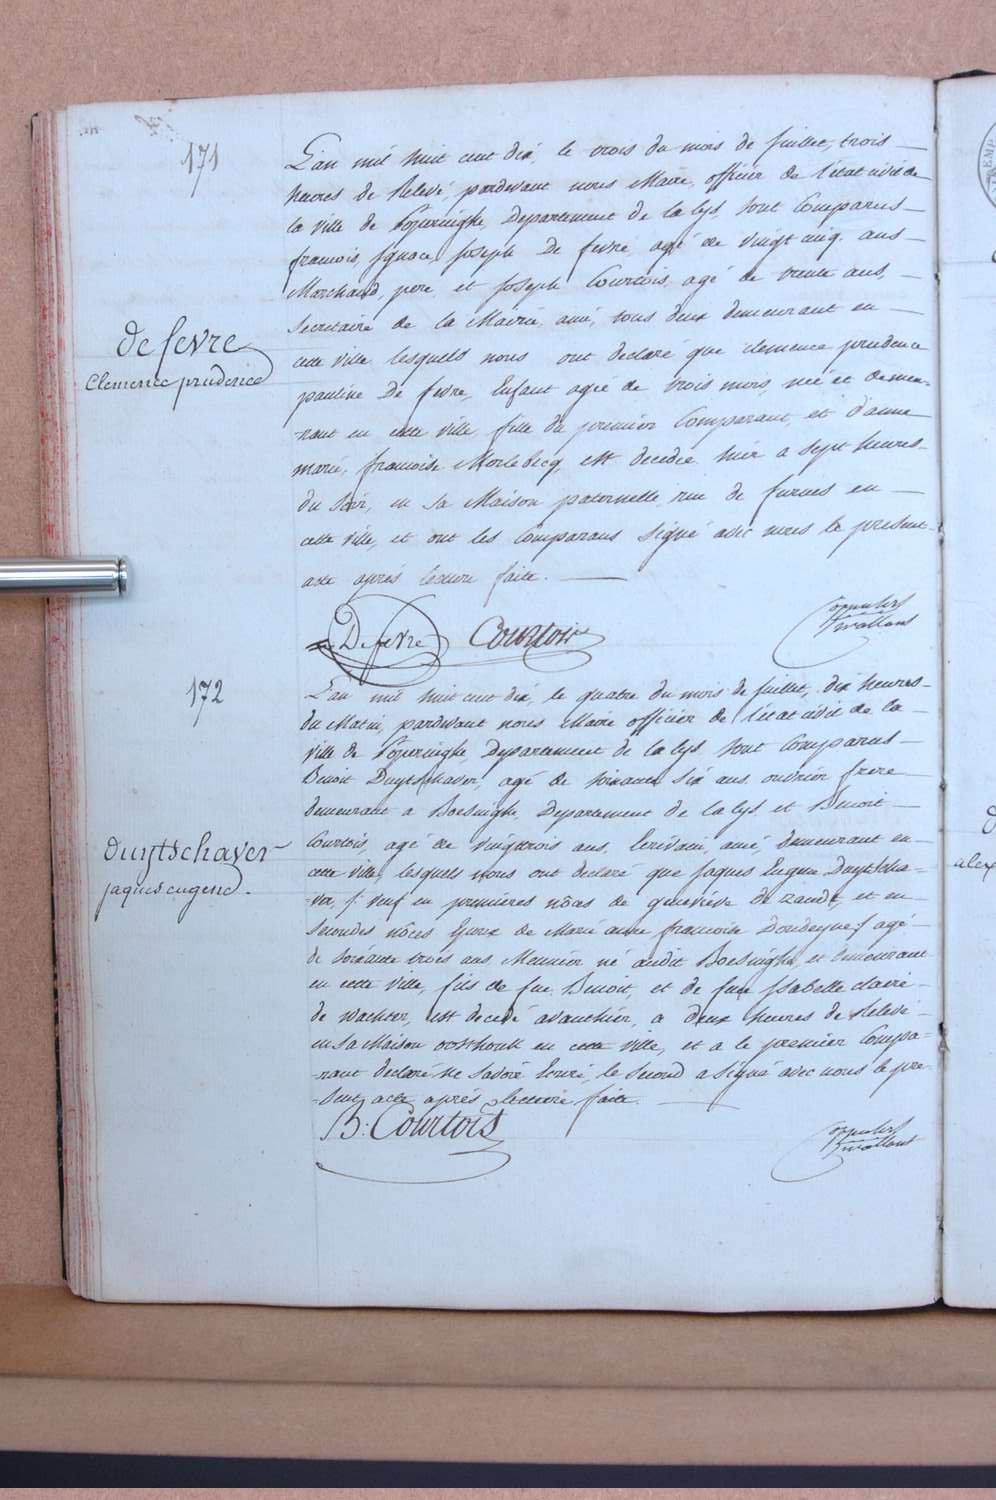 171
L'an mil huit cent dix, le trois du mois de juillet, trois
heures de relevé, pardevant nous Maire, officier de l'état civil de
la ville de Poperinghe, Departement de la lys, sont Comparus
francois, Ignace, Joseph De fevre, agé de vingt cinq ans
Marchand, pere, et Joseph Courtois, agé de trente ans,
Secretaire de la Mairie, ami, tous deux demeurant en
cette ville lesquels nous ont declaré que clemence prudence
pauline De fevre, Enfant agée de trois mois, née et demeu-
-rant en cette ville, fille du premier Comparant, et d'anne
marie, francoise Merlebecq, est decedée hier a sept heures
du soir, en sa Maison paternelle rue de furnes en
cette ville, et ont les Comparans signé avec nous le present
acte après lecture faite.
de fevre
Clemence prudence
De fevre Courtois
172
L'an mil huit cent dix, le quatre du mois de juillet, dix heures
du Matin, pardevant nous Maire officier de l'état civil de la
ville de Poperinghe, Departement de la lys, sont Comparus
Benoit Duytschaver, agé de soixante six ans, ouvrier frere
demeurant a Boesinghe, Departement de la lys, et Benoit
Courtois, agé de vingttrois ans, Ecrivain, ami, demeurant en
cette ville, lesquels nous ont declaré que Jaques Eugene Duytscha-
-ver, veuf en premières nôces de geneviève De zande, et en
secondes nôces Epoux de Marie anne francoise Doudeyne agé
de soixante trois ans, Meunier né audit Boesinghe, et demeurant
en cette ville, fils de feu Benoit, et de feue Isabelle claire
de wachter, est decedé avanthier, a deux heures de relevé
en sa Maison oosthouk en cette ville, et a le premier Compa-
-rant declaré ne savoir Ecrire, le second a signé avec nous le pre-
-sent acte après lecture faite.
duytschaver
jaques eugene.
B: Courtois
alex